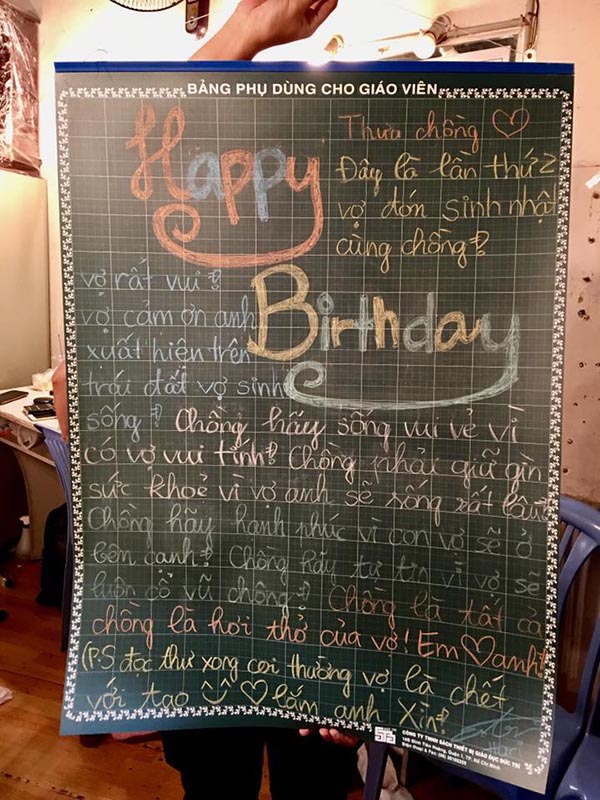 BẢNG PHỤ DÙNG CHO GIÁO VIÊN
Happy
Birthday
Thưa chồng ♡
Đây là lần thứ 2
vợ đón sinh nhật
cùng chồng!
vợ rất vui!
vợ cảm ơn anh
xuất hiện trên
trái đất vợ sinh
sống! Chồng hãy sống vui vẻ vì
có vợ vui tính! Chồng phải giữ gìn
sức khoẻ vì vợ anh sẽ sống rất lâu!
Chồng hãy hạnh phúc vì con vợ sẽ ở
bên cạnh! Chồng hãy tự tin vì vợ sẽ
luôn cổ vũ chồng! Chồng là tất cả
chồng là hơi thở của vợ! Em ♡ anh!
(P.S đọc thư xong coi thường vợ là chết
với tao ♡ lắm anh Xìn!
Hari
CÔNG TY TNHH SÁCH THIẾT BỊ GIÁO DỤC ĐỨC TRÍ